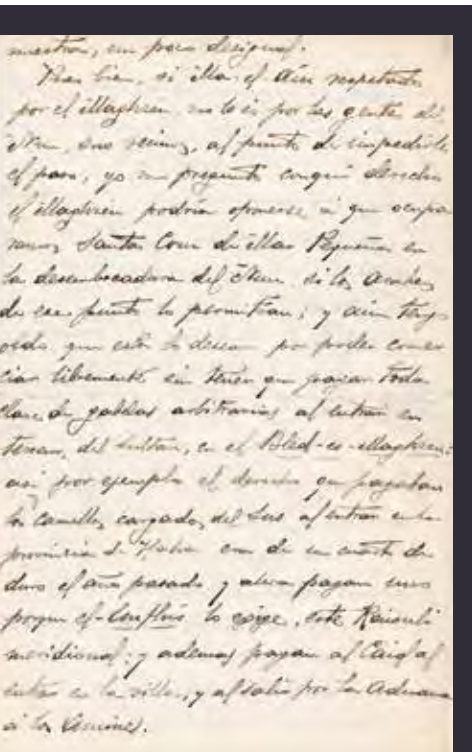 nuestros, un poco desigual.
Pues bien, si Ma-el-Aïn respetado
por el Maghzen, no lo es por las gentes del
Nun, sus vecinos, al punto de impedirle
el paso, yo me pregunto con qué derecho
el Maghzen podría oponerse a que ocupá
ramos Santa Cruz de Mar Pequeña en
la desembocadura del Nun si los árabes
de ese punto lo permitían; y aún tengo
oído que ellos lo desean por poder comer
ciar libremente sin tener que pagar toda
clase de gabelas arbitrarias al entrar en
terreno del Sultán, en el Bled-es-Maghzen;
así por ejemplo el derecho que pagaban
los camellos cargados del Sus al entrar en la
provincia de Haha era de un cuarto de
duro el año pasado y ahora pagan uno
porque el-Anflús lo exige, este Raisuli
meridional; y además pagan al Caid al
entrar en la villa, y al salir por la Aduana
a los Amines.